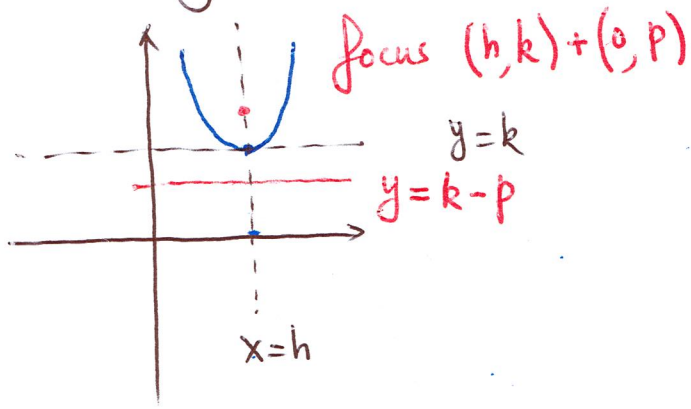 focus (h,k)+(0,p)
y=k
y=k-p
x=h